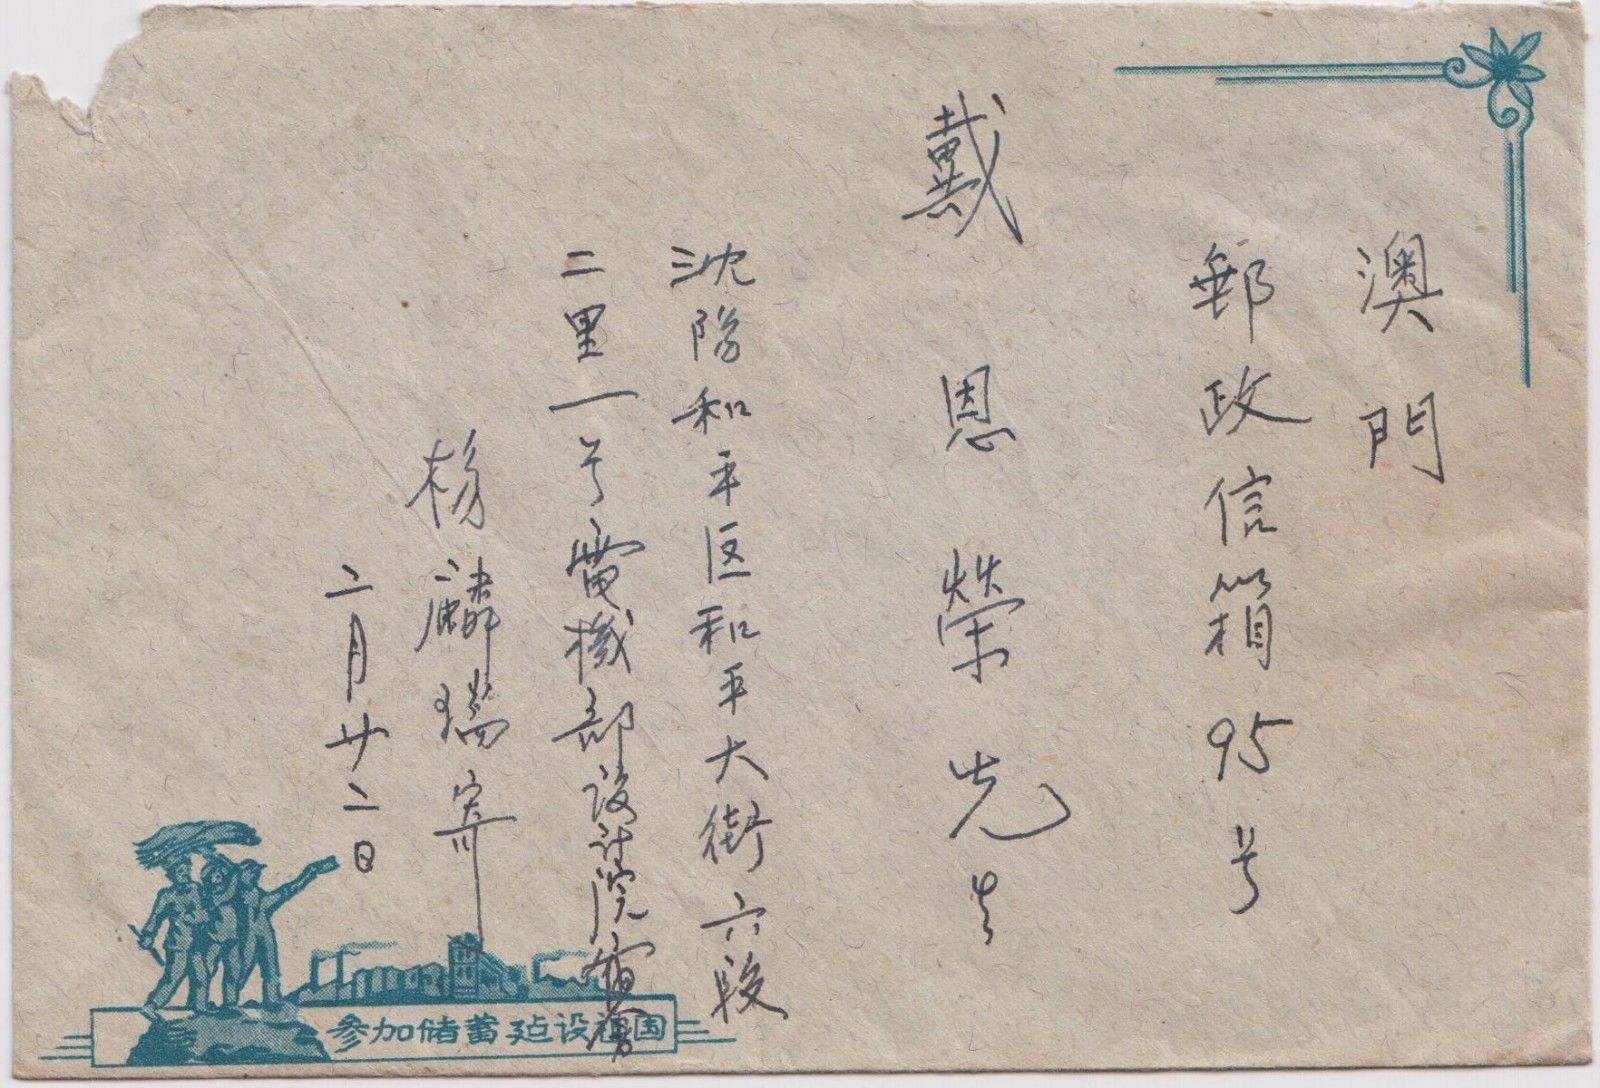 澳門
郵政信箱95号
戴恩荣先生
沈阳和平区和平大街六段
二里一号電機部设计院宿舍
杨麟瑞寄
二月廿二日
参加储蓄建设祖国